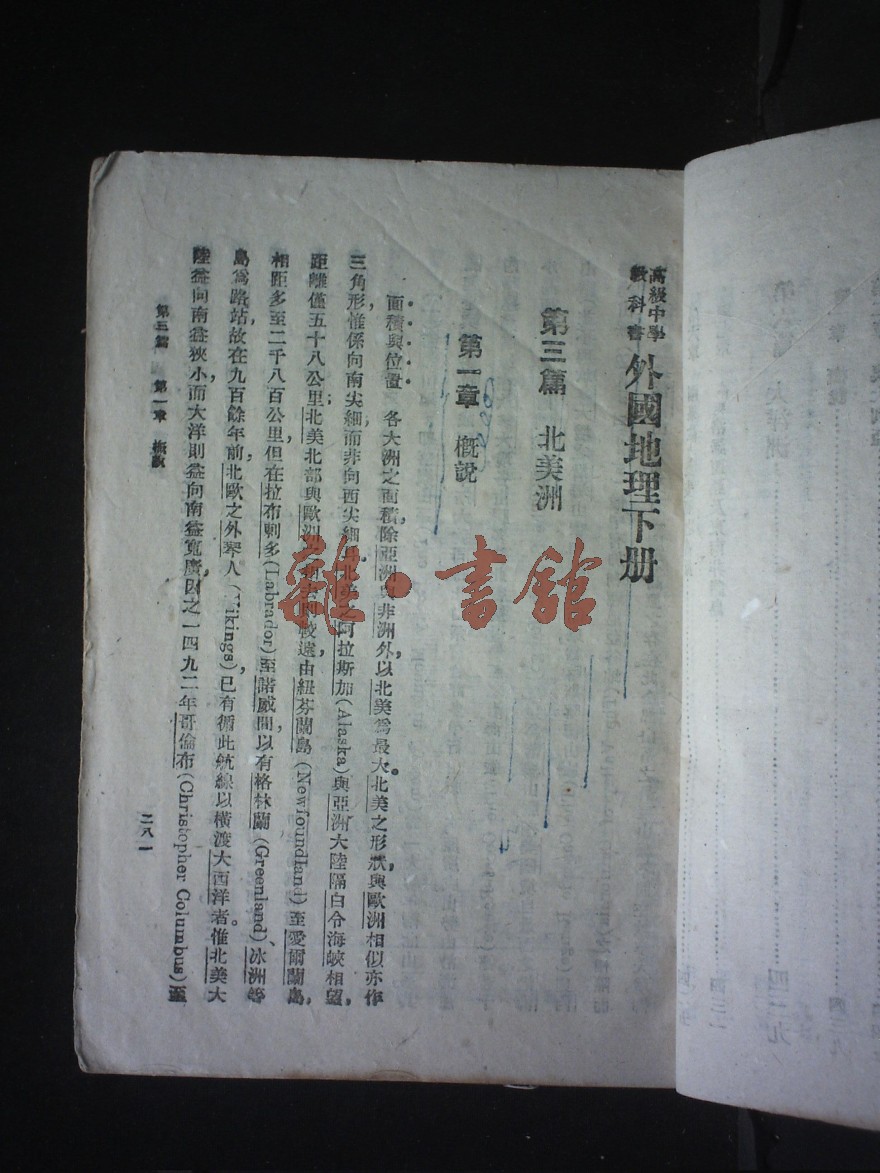 高級中學
教科書
外國地理下册
第三篇 北美洲
第一章 概說
面積與位置 各大洲之面積，除亞洲與非洲外，以北美爲最大。北美之形狀，與歐洲相似，亦作
三角形，惟係向南尖細，而非向西尖細。北美之阿拉斯加(Alaska)與亞洲大陸隔白令海峽相望，
距離僅五十八公里；北美北部與歐洲
較遠，由紐芬蘭島(Newfoundland)至愛爾蘭島，
相距多至二千八百公里，但在拉布剌多(Labrador)至諾威間，以有格林蘭(Greenland)、冰洲等
島爲路站，故在九百餘年前，北歐之外琴人(Vikings)已有循此航線以橫渡大西洋者。惟北美大
陸益向南益狹小，而大洋則益向南益寬廣，因之一四九二年哥倫布(Christopher Columbus)至
第三篇 第一章 概說
二八一
雜·書館
四二九